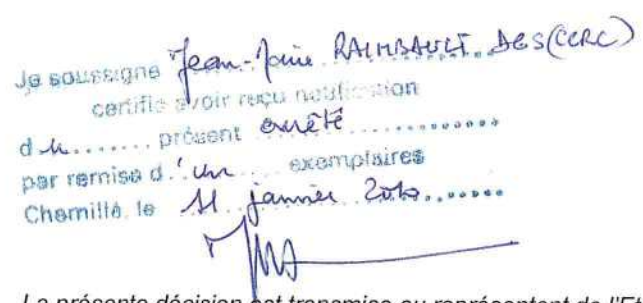 Je soussigné Jean-Marie RAIMBAULT DGS (CCRC)
certifie avoir reçu notification
du ........ présent arrêté ................
par remise d'un .... exemplaires
Chemillé, le 11 janvier 2010
La présente décision est transmise au représentant de l'Et